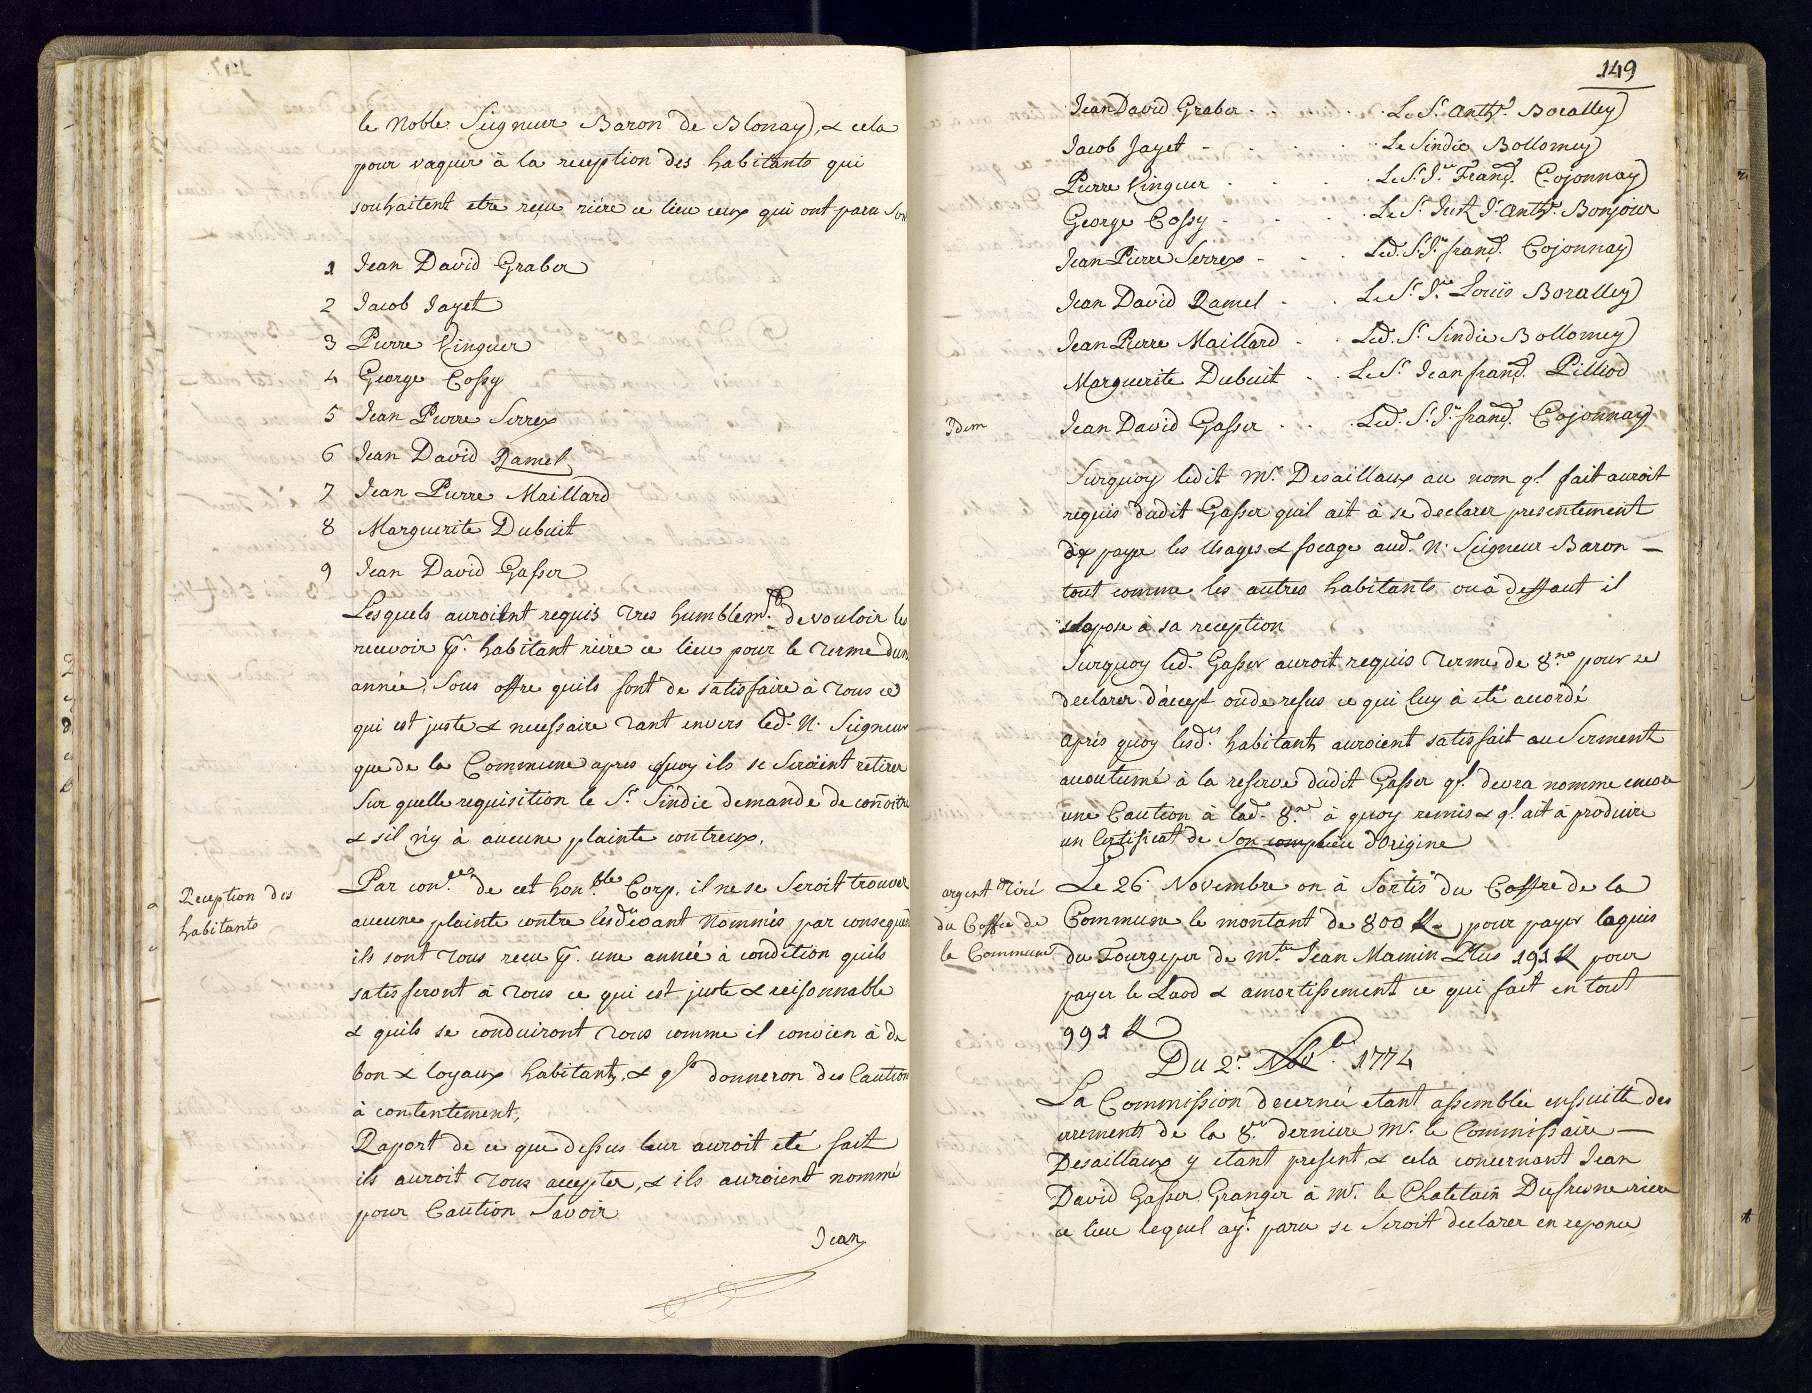 le Noble Seigneur Baron de Blonay), & cela
pour vaquer à la reception des habitants qui
souhaitent etre reçu riére ce lieu ceux qui ont paru Son
1 Jean David Graber
2 Jacob Jayet
3 Pierre Vinguer
4 George Cossy
5 Jean Pierre Serrex
6 Jean David Ramel
7 Jean Pierre Maillard
8 Marguerite Dubuit
9 Jean David Gasser
Lesquels auroient requis tres humblemt. de vouloir les
recevoir pr. habitant riére ce lieu pour le terme dune
année, Sous offre quils font de satisfaire à tous ce
qui est juste & necessaire tant envers led. N. Seigneur
que de la Commune apres quoy ils se Seroient retirer
Sur quelle requisition le Sr. Sindic demande de connoitre
& sil n'y à aucune plainte contreux,
Reception des
habitants
Par con.ce de cet hon.ble Corp, il ne se Seroit trouver
aucune plainte contre lesd. devant Nommés par consequent
ils sont tous recu pr. une année à condition quils
satisferont à tous ce qui est juste & reisonnable
& quils se conduiront tous comme il convien à de
bon & loyaux habitants, & qls donneron des Caution
à contentement,
Raport de ce que dessus leur auroit eté fait
ils auroit tous accepter, & ils auroient nommé
pour Caution Savoir
Jean
149
Jean David Graber - Le Sr. Anthe. Boralley
Jacob Jayet - Le Sindic Bollomey
Pierre Vinguer - Le Sr. Jn. Franç. Cojonnay
George Cossy - Le Sr. Just. Jn. Anthe. Bonjour
Jean Pierre Serrex - Led. Sr. Jn. franç. Cojonnay
Jean David Ramel - Le Sr. Jn. Louis Boralley
Jean Pierre Maillard - Led. Sr. Sindic Bollomey
Marguerite Dubuit - Le Sr. Jean franç. Pilliod
Idem
Jean David Gasser - Led. Sr. Jn. franç. Cojonnay
Surquoy ledit Mr. Desaillaux au nom ql. fait auroit
requis dudit Gasser quil ait à se declarer presentement
de payer les Usages & focage aud. N. Seigneur Baron —
tout comme les autres habitants ou à deffaut il
s'opose à sa reception
Surquoy led. Gasser auroit requis terme de 8.ne pour se
declarer d'accept ou de refus ce qui luy à eté accordé
Après quoy lesd. habitants auroient satisfait au Serment
accoutumé à la reserve dudit Gasser ql. devra nomme encore
une Caution à lad. 8.ne à quoy remis & ql. ait à produire
un Certificat de Son lieu d'Origine
argent tiré
du Coffre de
la Commune
Le 26 Novembre on à Sortis du Coffre de la
Commune le montant de 800 ff. pour payer laquis
du Fourgeper de Mtre Jean Mamin Plus 191 ff pour
payer le Laod & amortissement ce qui fait en tout
991 ff
Du 2e. Xbre. 1774
La Commission decernée etant assemblée ensuitte des
errements de la 8.ne derniere Mr. le Commissaire —
Desaillaux y etant present & cela concernant Jean
David Gasser Granger à Mr. le Chatelain Dufresne riere
ce lieu lequel ayt. paru se Seroit declarer en reponce